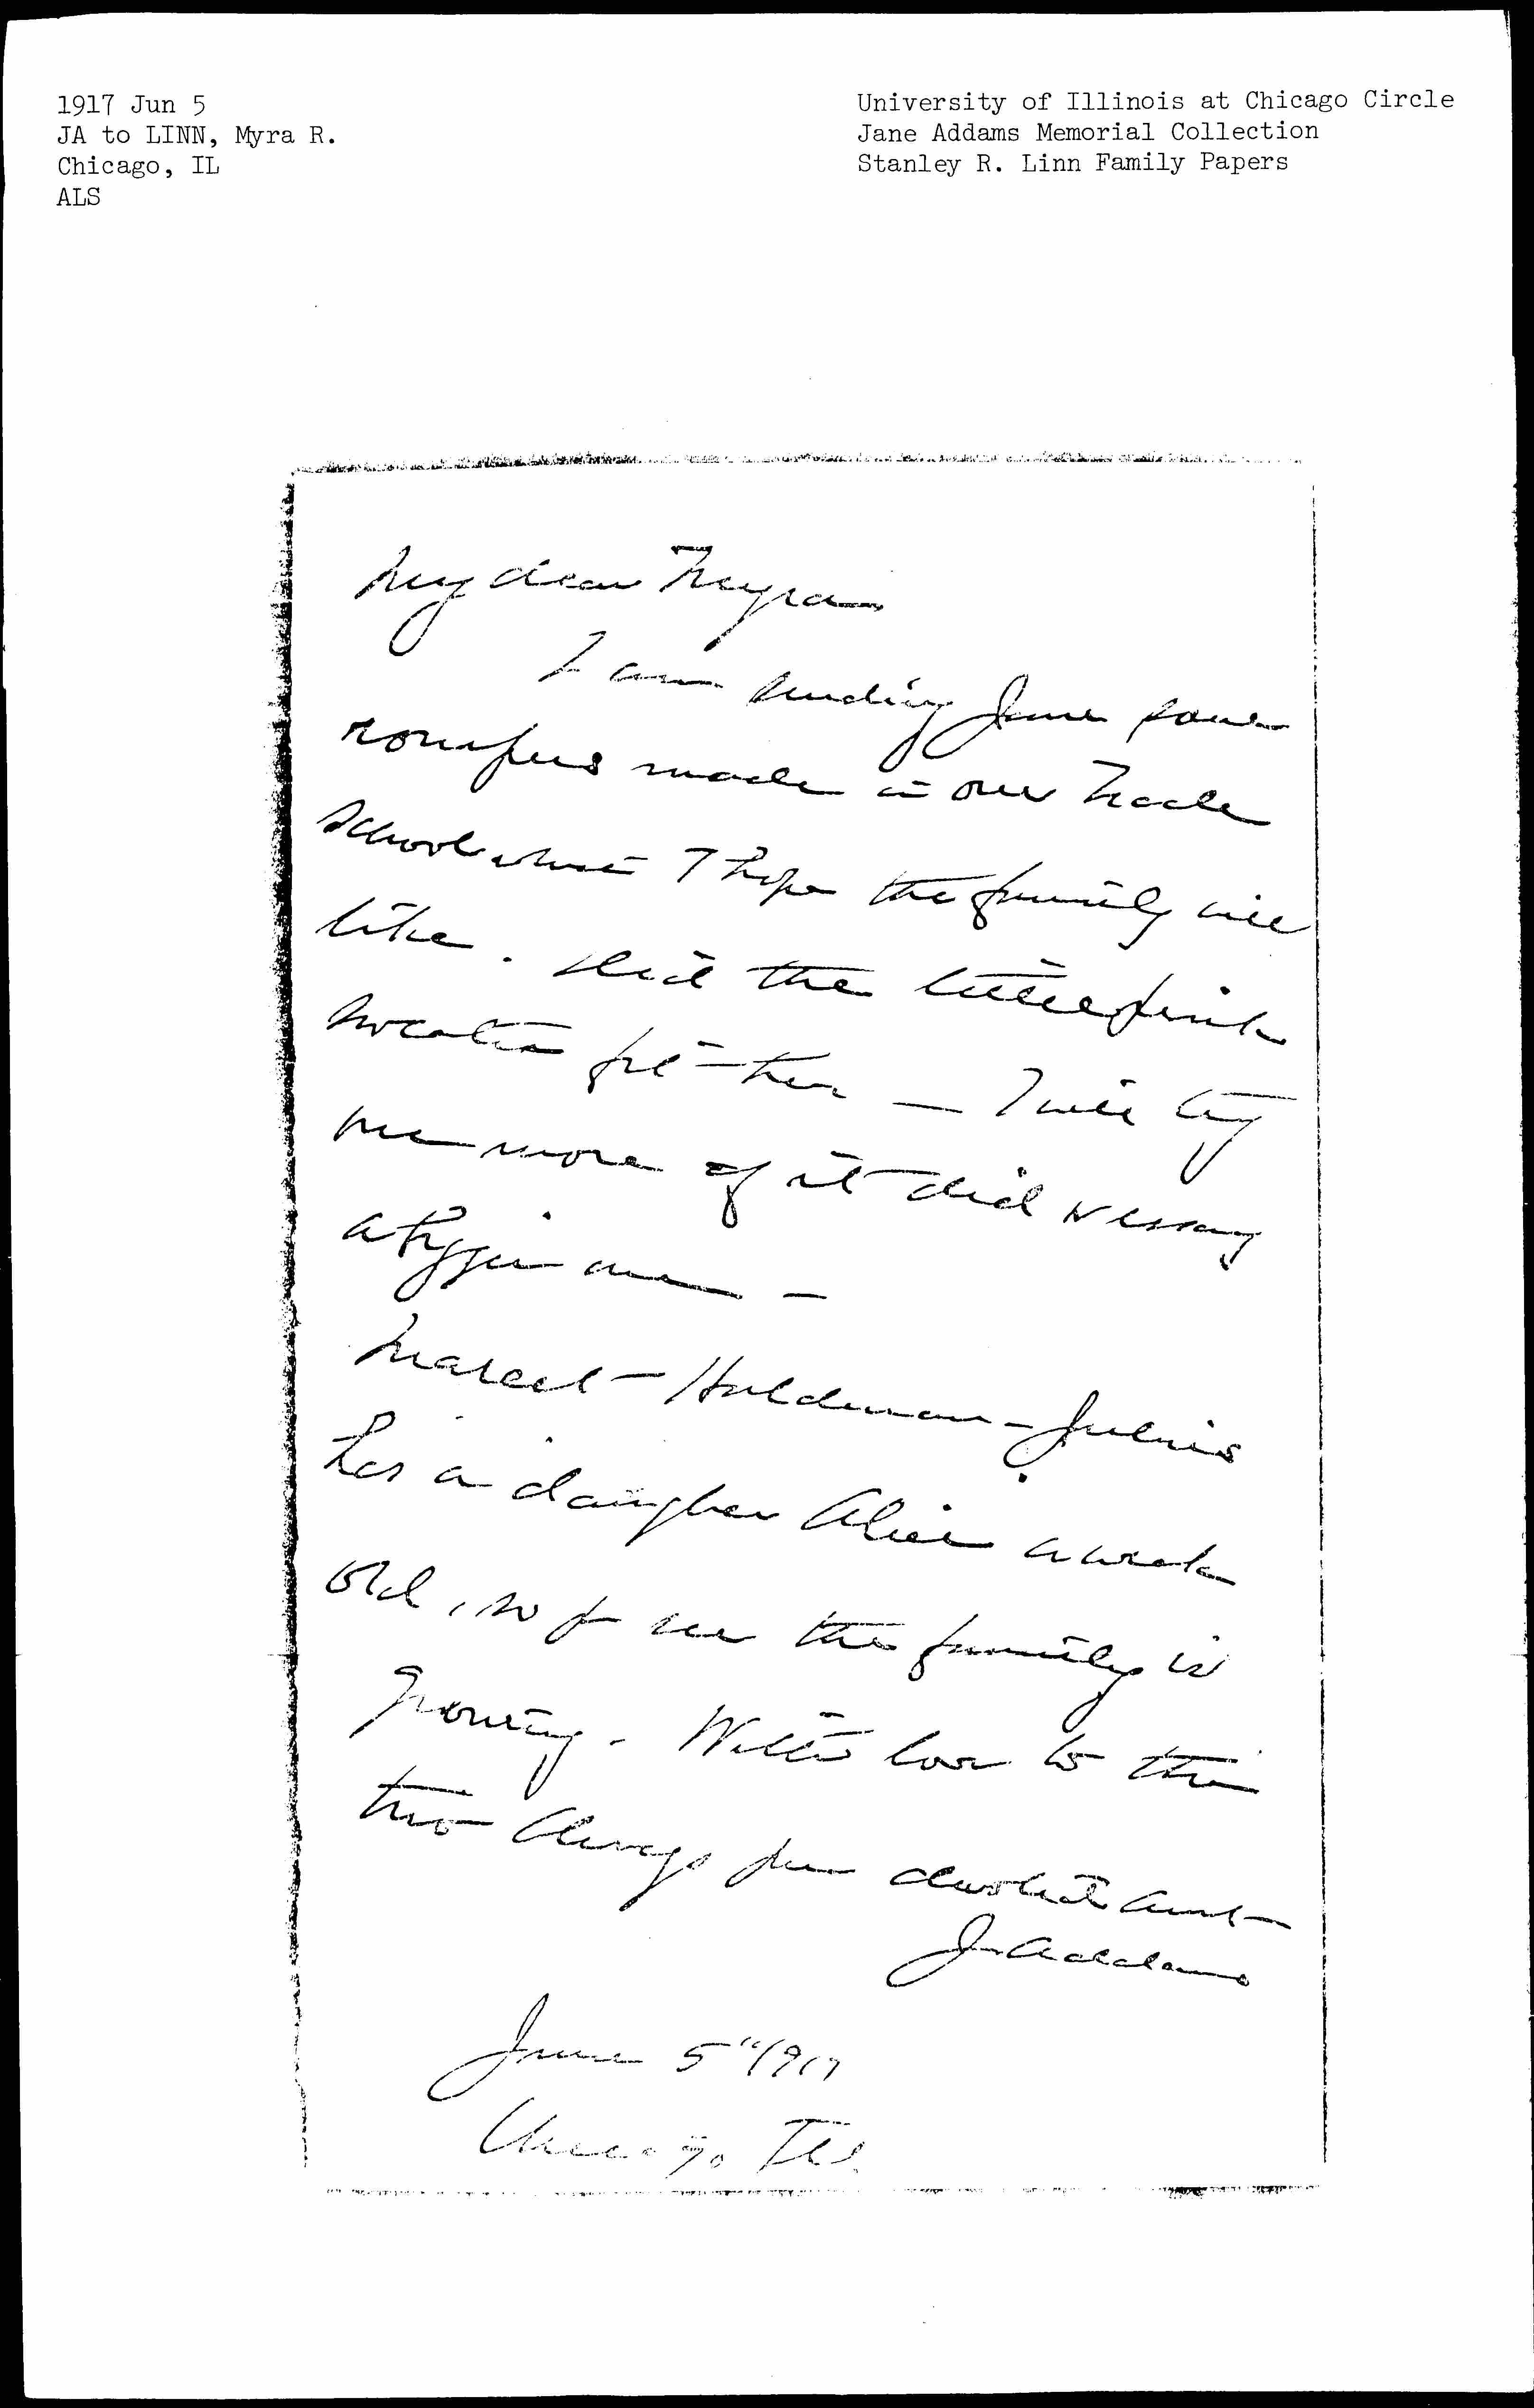 1917 Jun 5
JA to LINN, Myra R.
Chicago, IL
ALS
University of Illinois at Chicago Circle
Jane Addams Memorial Collection
Stanley R. Linn Family Papers
My dear Myra
I am sending Jane some
rompers made in our trade
school which I hope the family will
like. Did the little pink
sweater fit her — I will try
one more if it did or
a bigger one —
Marcet - Haldeman - Julius
has a daughter Alice a week
old, so you see the family is
growing. With love to the
two Always your devoted aunt
J. Addams
June 5" 1917
Chicago Ill.